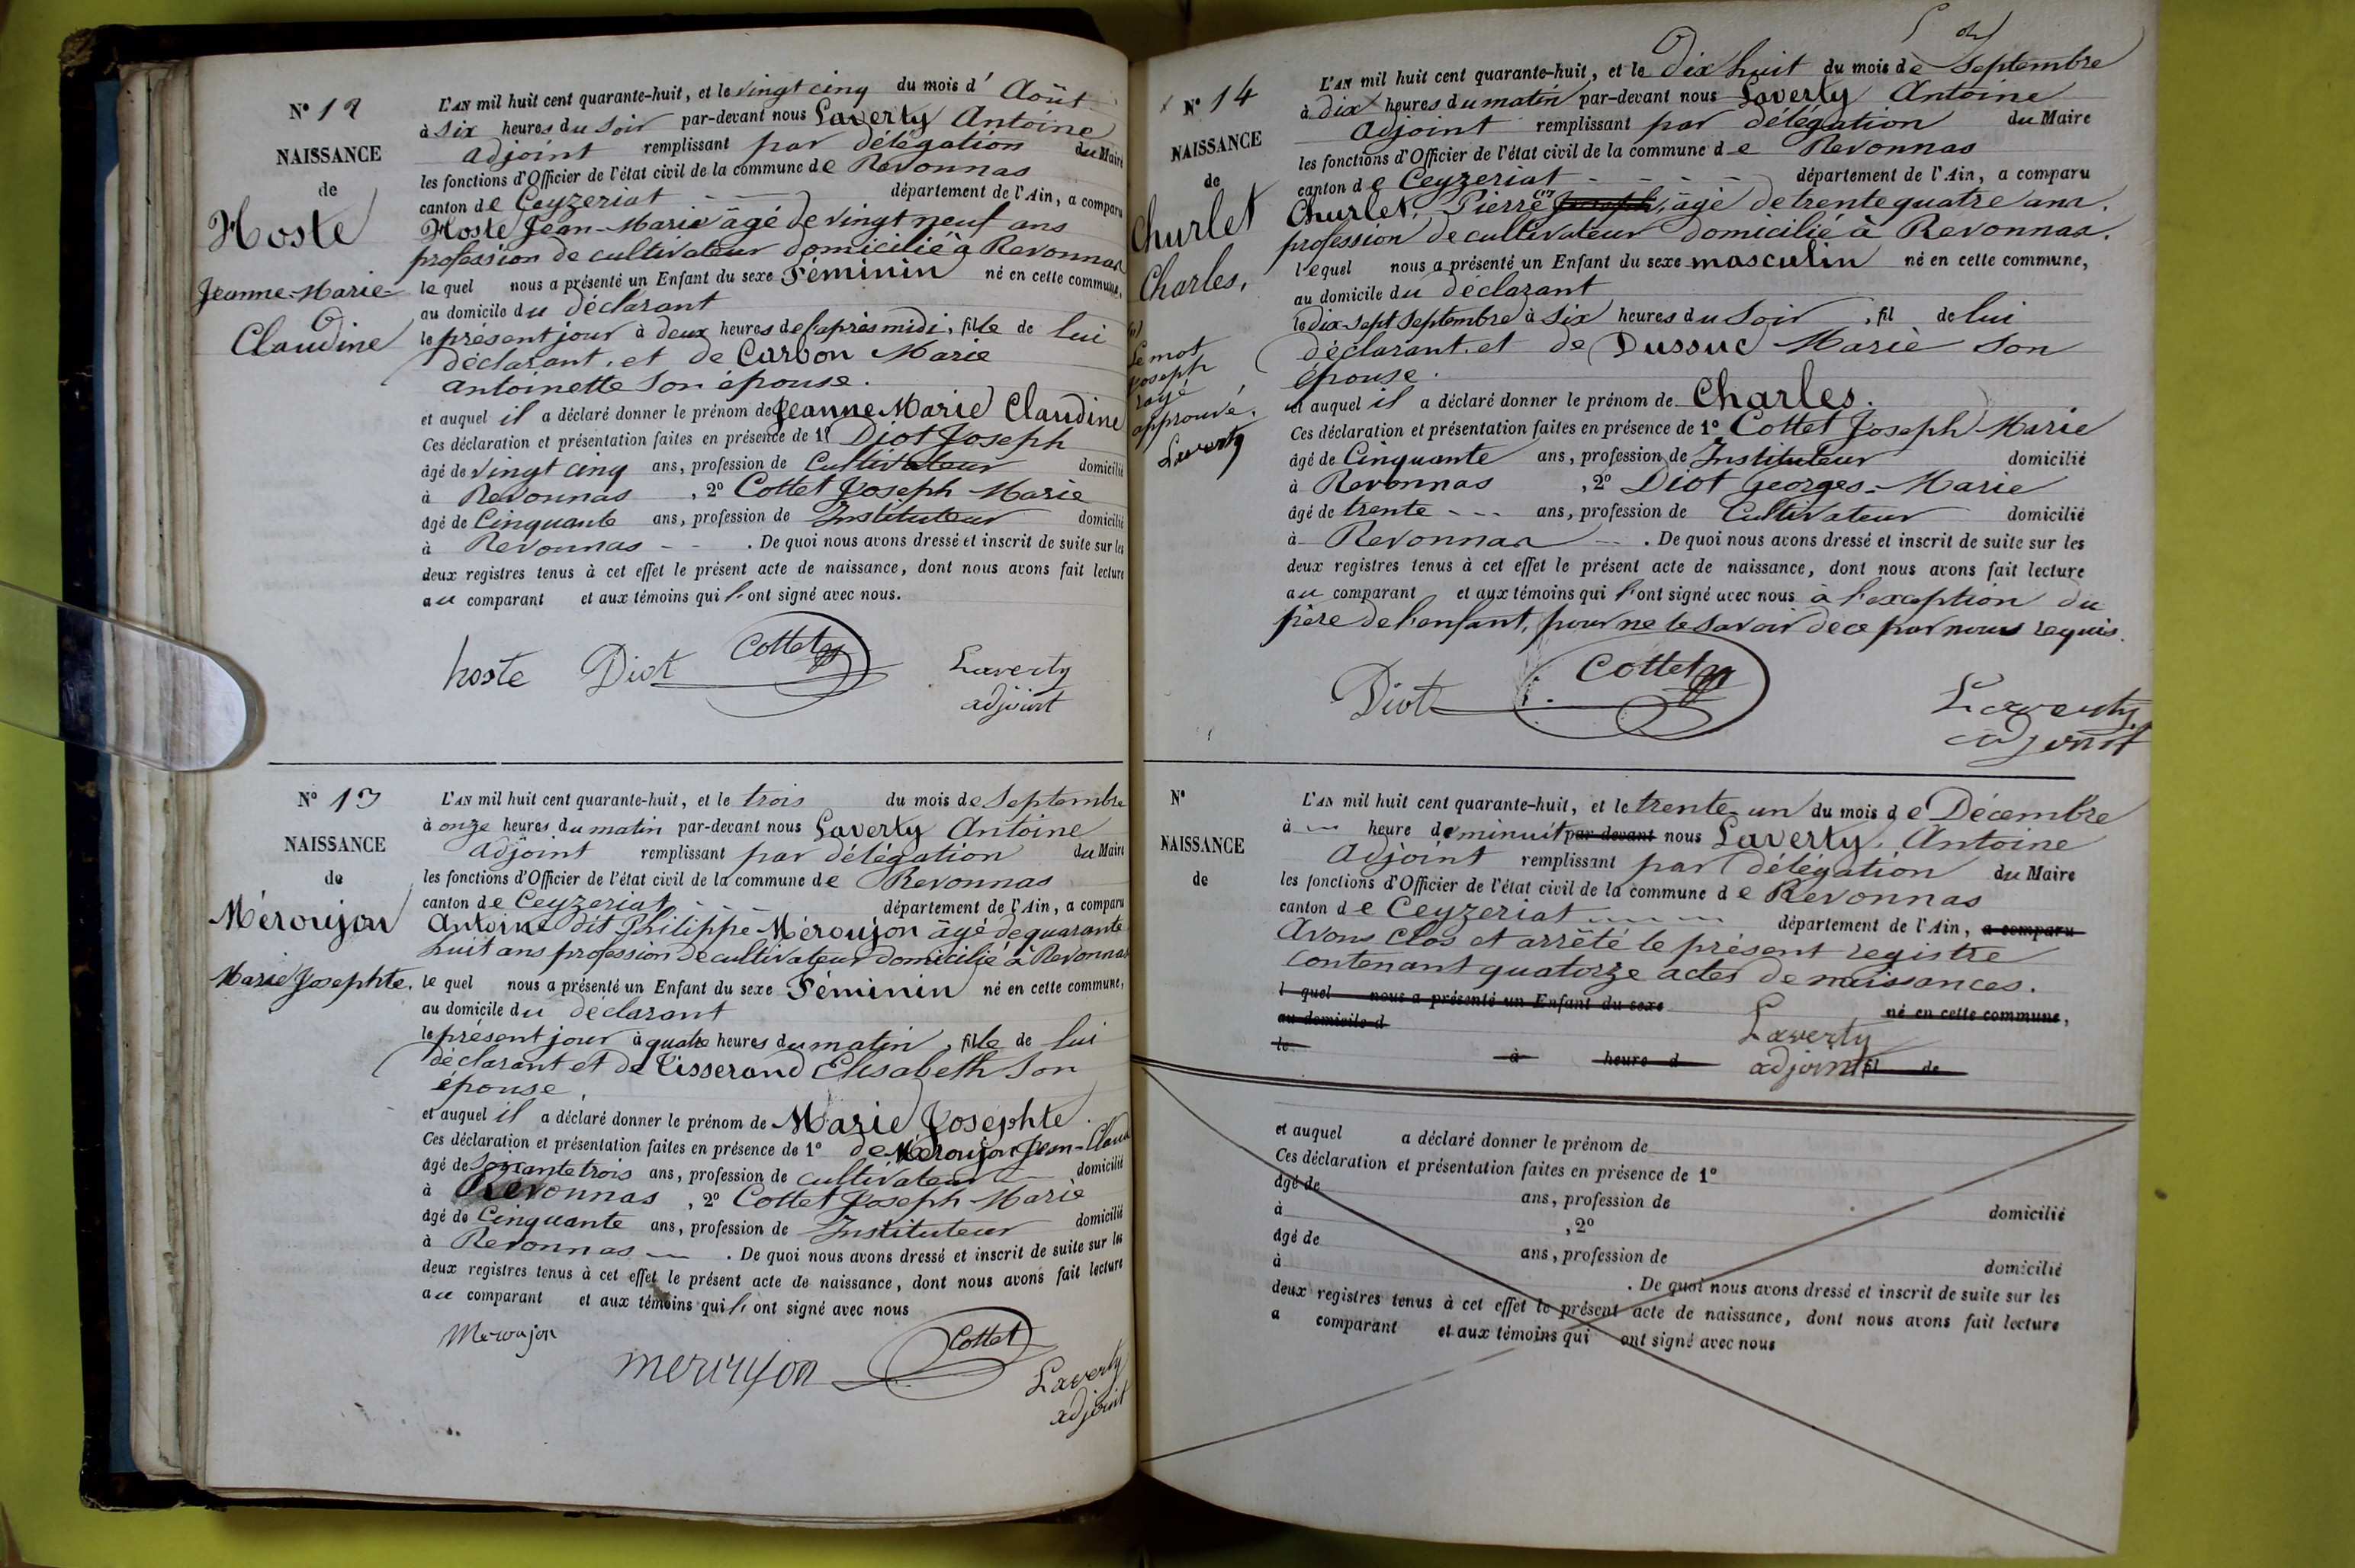 N° 12
NAISSANCE
de
Hoste
Jeanne-Marie-
Claudine
L'AN mil huit cent quarante-huit, et le vingt cinq du mois d' Août
à six heures du soir par-devant nous Laverty Antoine
adjoint remplissant par délégation du Maire
les fonctions d'Officier de l'état civil de la commune de Revonnas
canton de Ceyzeriat - - département de l'Ain, a comparu
Hoste Jean-Marie âgé de vingt neuf ans
profession de cultivateur domicilié à Revonnas
lequel nous a présenté un Enfant du sexe Féminin né en cette commune,
au domicile du déclarant
le présent jour à deux heures de l'après midi, fille de lui
déclarant, et de Carbon Marie
antoinette son épouse.
et auquel il a déclaré donner le prénom de Jeanne Marie Claudine
Ces déclaration et présentation faites en présence de 1° Diot Joseph
âgé de vingt cinq ans, profession de Cultivateur domicilié
à Revonnas , 2° Cottet Joseph Marie
âgé de Cinquante ans, profession de Instituteur domicilié
à Revonnas - - . De quoi nous avons dressé et inscrit de suite sur les
deux registres tenus à cet effet le présent acte de naissance, dont nous avons fait lecture
au comparant et aux témoins qui l'ont signé avec nous.
hoste Diot Cottet Laverty
adjoint
N° 13
NAISSANCE
de
Méroujon
Marie Josephte.
L'AN mil huit cent quarante-huit, et le trois du mois de Septembre
à onze heures du matin par-devant nous Laverty Antoine
adjoint remplissant par délégation du Maire
les fonctions d'Officier de l'état civil de la commune de Revonnas
canton de Ceyzeriat - - - département de l'Ain, a comparu
Antoine dit Philippe Méroujon âgé de quarante
huit ans profession de cultivateur domicilié à Revonnas
lequel nous a présenté un Enfant du sexe Féminin né en cette commune,
au domicile du déclarant
le présent jour à quatre heures du matin, fille de lui
déclarant et de Tisserand Elisabeth son
épouse
et auquel il a déclaré donner le prénom de Marie Josephte.
Ces déclaration et présentation faites en présence de 1° de Méroujon Jean-Claud
âgé de soixante trois ans, profession de cultivateur domicilié
à Revonnas , 2° Cottet Joseph Marie
âgé de Cinquante ans, profession de Instituteur domicilié
à Revonnas - . De quoi nous avons dressé et inscrit de suite sur les
deux registres tenus à cet effet le présent acte de naissance, dont nous avons fait lecture
au comparant et aux témoins qui l'ont signé avec nous
Meroujon meroujon Cottet Laverty
adjoint
N° 14
NAISSANCE
de
Churlet
Charles,
(1)
Le mot
joseph
rayé
approuvé.
Laverty
L'AN mil huit cent quarante-huit, et le Dix huit du mois de Septembre
à dix heures du matin par-devant nous Laverty Antoine
adjoint remplissant par délégation du Maire
les fonctions d'Officier de l'état civil de la commune de Revonnas
canton de Ceyzeriat - - - - département de l'Ain, a comparu
Churlet, Pierre (1) Joseph, âgé de trente quatre ans.
profession de cultivateur domicilié à Revonnas.
lequel nous a présenté un Enfant du sexe masculin né en cette commune,
au domicile du déclarant
le dix-sept Septembre à six heures du soir , fil de lui
déclarant, et de Dussuc Marie son
épouse.
et auquel il a déclaré donner le prénom de Charles.
Ces déclaration et présentation faites en présence de 1° Cottet Joseph-Marie
âgé de Cinquante ans, profession de Instituteur domicilié
à Revonnas , 2° Diot Georges-Marie
âgé de trente - - - ans, profession de Cultivateur domicilié
à Revonnas - . De quoi nous avons dressé et inscrit de suite sur les
deux registres tenus à cet effet le présent acte de naissance, dont nous avons fait lecture
au comparant et aux témoins qui l'ont signé avec nous à l'exception du
père de l'enfant, pour ne le savoir de ce par nous requis.
Diot Cottet Laverty
adjoint
N°
NAISSANCE
de
L'AN mil huit cent quarante-huit, et le trente-un du mois de Décembre
à - heure de minuit par-devant nous Laverty, Antoine
Adjoint remplissant par délégation du Maire
les fonctions d'Officier de l'état civil de la commune de Revonnas
canton de Ceyzeriat - - - département de l'Ain, a comparu
Avons clos et arrêté le présent registre
contenant quatorze actes de naissances.
l quel nous a présenté un Enfant du sexe né en cette commune,
au domicile d Laverty
le à heure d adjoint fil de
et auquel a déclaré donner le prénom de
Ces déclaration et présentation faites en présence de 1°
âgé de ans, profession de domicilié
à , 2°
âgé de ans, profession de domicilié
à . De quoi nous avons dressé et inscrit de suite sur les
deux registres tenus à cet effet le présent acte de naissance, dont nous avons fait lecture
a comparant et aux témoins qui ont signé avec nous